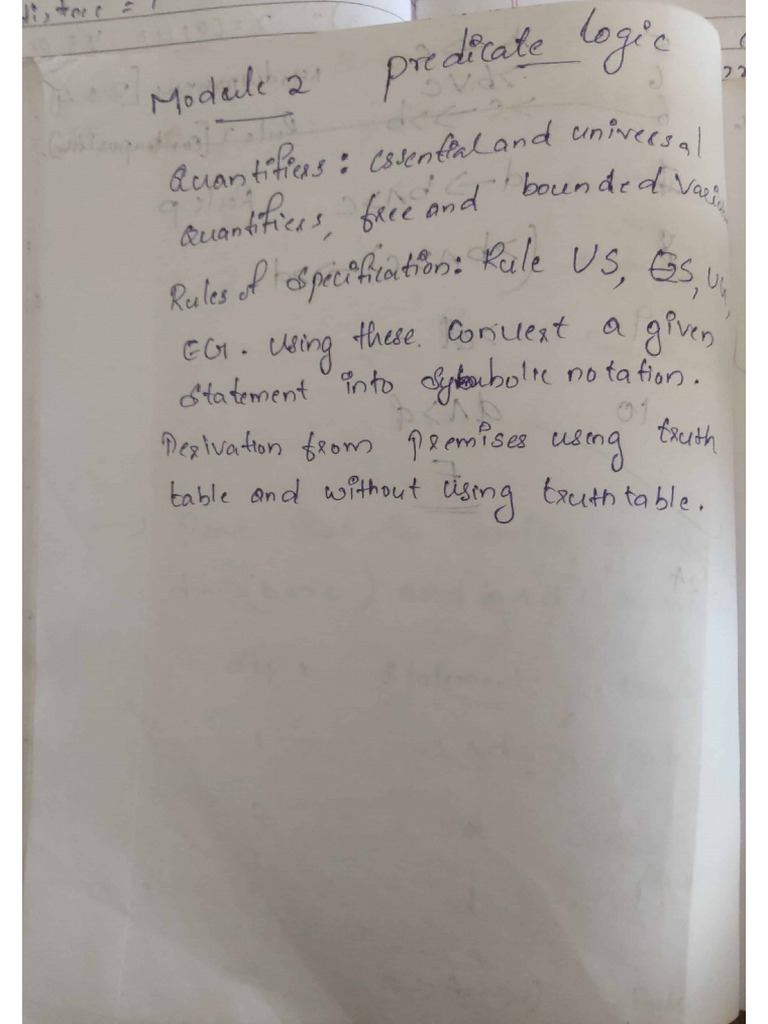 di, true = 1
Module 2 predicate logic
Quantifiers: essential and universal
Quantifiers, free and bounded
Rules of specification: Rule US, ES,
EG. Using these convert a given
statement into symbolic notation.
Derivation from premises using truth
table and without using truth table.